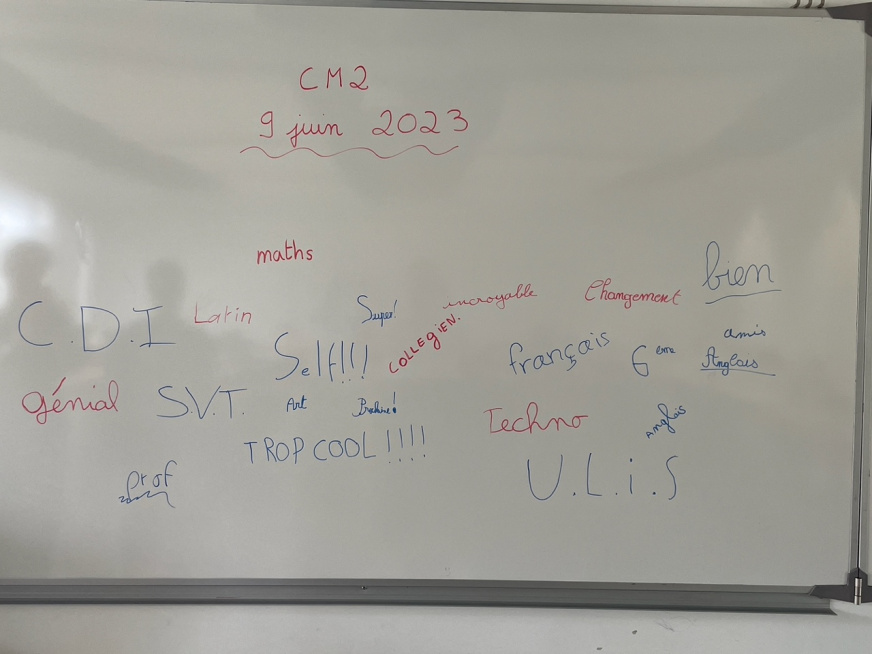 CM2
9 juin 2023
maths
bien
incroyable
Changement
Super!
C.D.I
Latin
COLLEGiEN.
amis
Self!!!
français
6ème
Anglais
génial
S.V.T.
Art
Techno
Anglais
TROP COOL!!!!
prof
U.L.i.S